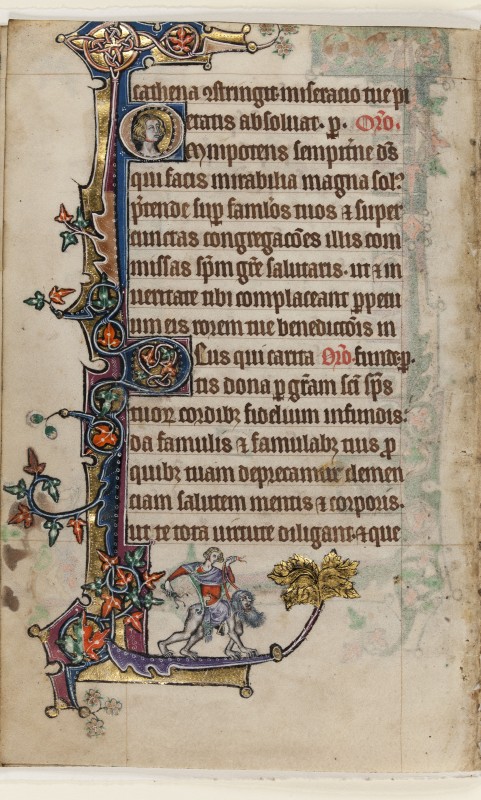 cathena ɔstringit miseracio tue pi
etatis absoluat. p. Oro.
Omnipotens sempitne ds
qui facis mirabilia magna sol?
ptende sup famlos tuos ⁊ super
cunctas congregacões illis com
missas spm gre salutaris. ut ⁊ in
ueritate tibi complaceant ppetu
um eis rorem tue benedictõis in
Deus qui carita Oro. funde. p.
tis dona p gram sci sps
tuoꝝ cordibꝫ fidelium infundis:
da famulis ⁊ famulabꝫ tuis p
quibꝫ tuam deprecamur clemen
ciam salutem mentis ⁊ corporis.
ut te tota uirtute diligant. ⁊ que